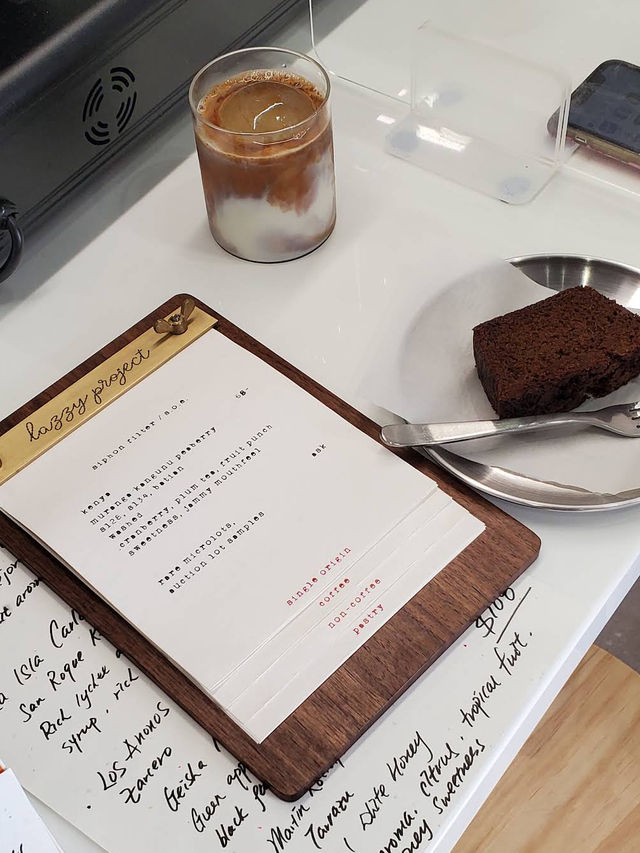 lazzy project
siphon filter / a.o.e.
68-
kenya
muranga kangunu peaberry
sl28, sl34, batian
washed
cranberry, plum tea, fruit punch
sweetness, jammy mouthfeel
ask
rare microlots,
auction lot samples
single origin
coffee
non-coffee
pastry
Isla
San Roque
Rich lychee
syrup, rich
Los Anonos
Zarcero
Geisha
Green app
black
$108
Martin
Tarrazu
White Honey
citrus, tropical fruit.
Sweetness